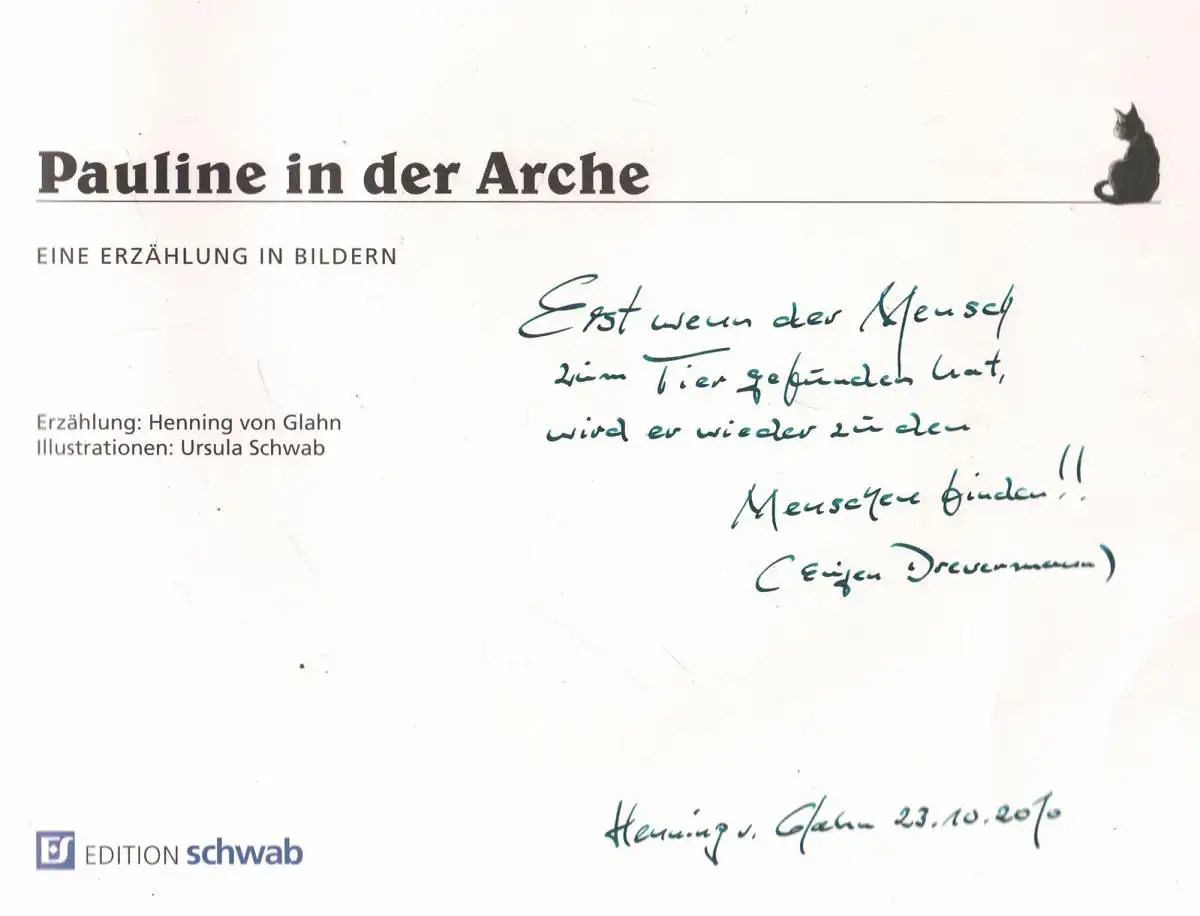 Pauline in der Arche
EINE ERZÄHLUNG IN BILDERN
Erst wenn der Mensch
zum Tier gefunden hat,
wird er wieder zu den
Menschen finden!!
(Eugen Drevermann)
Erzählung: Henning von Glahn
Illustrationen: Ursula Schwab
Henning v. Glahn 23.10.2010
ES EDITION schwab